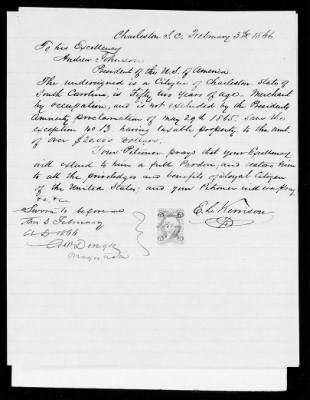 Charleston S.C. February 3th 1866
To his Excellency
Andrew Johnson
President of the U.S. of America.
The undersigned is a Citizen of Charleston State of
South Carolina, is Fifty two Years of age. Merchant
by occupation, and is not excluded by the Presidents
Amnesty proclamation of May 29th 1865. save the
exception No 13. having taxable property to the amt.
of over $20000 Dollars.
Your Petioner prays that your Excellency
will extend to him a full Pardon, and restore him
to all the priviledges and benefits of a loyal Citizen
of the United States: and your Petioner will ever pray
&c &c
Sworn to before me
this 3 February
A.D 1866
E. L. Kerrison
Magistrate